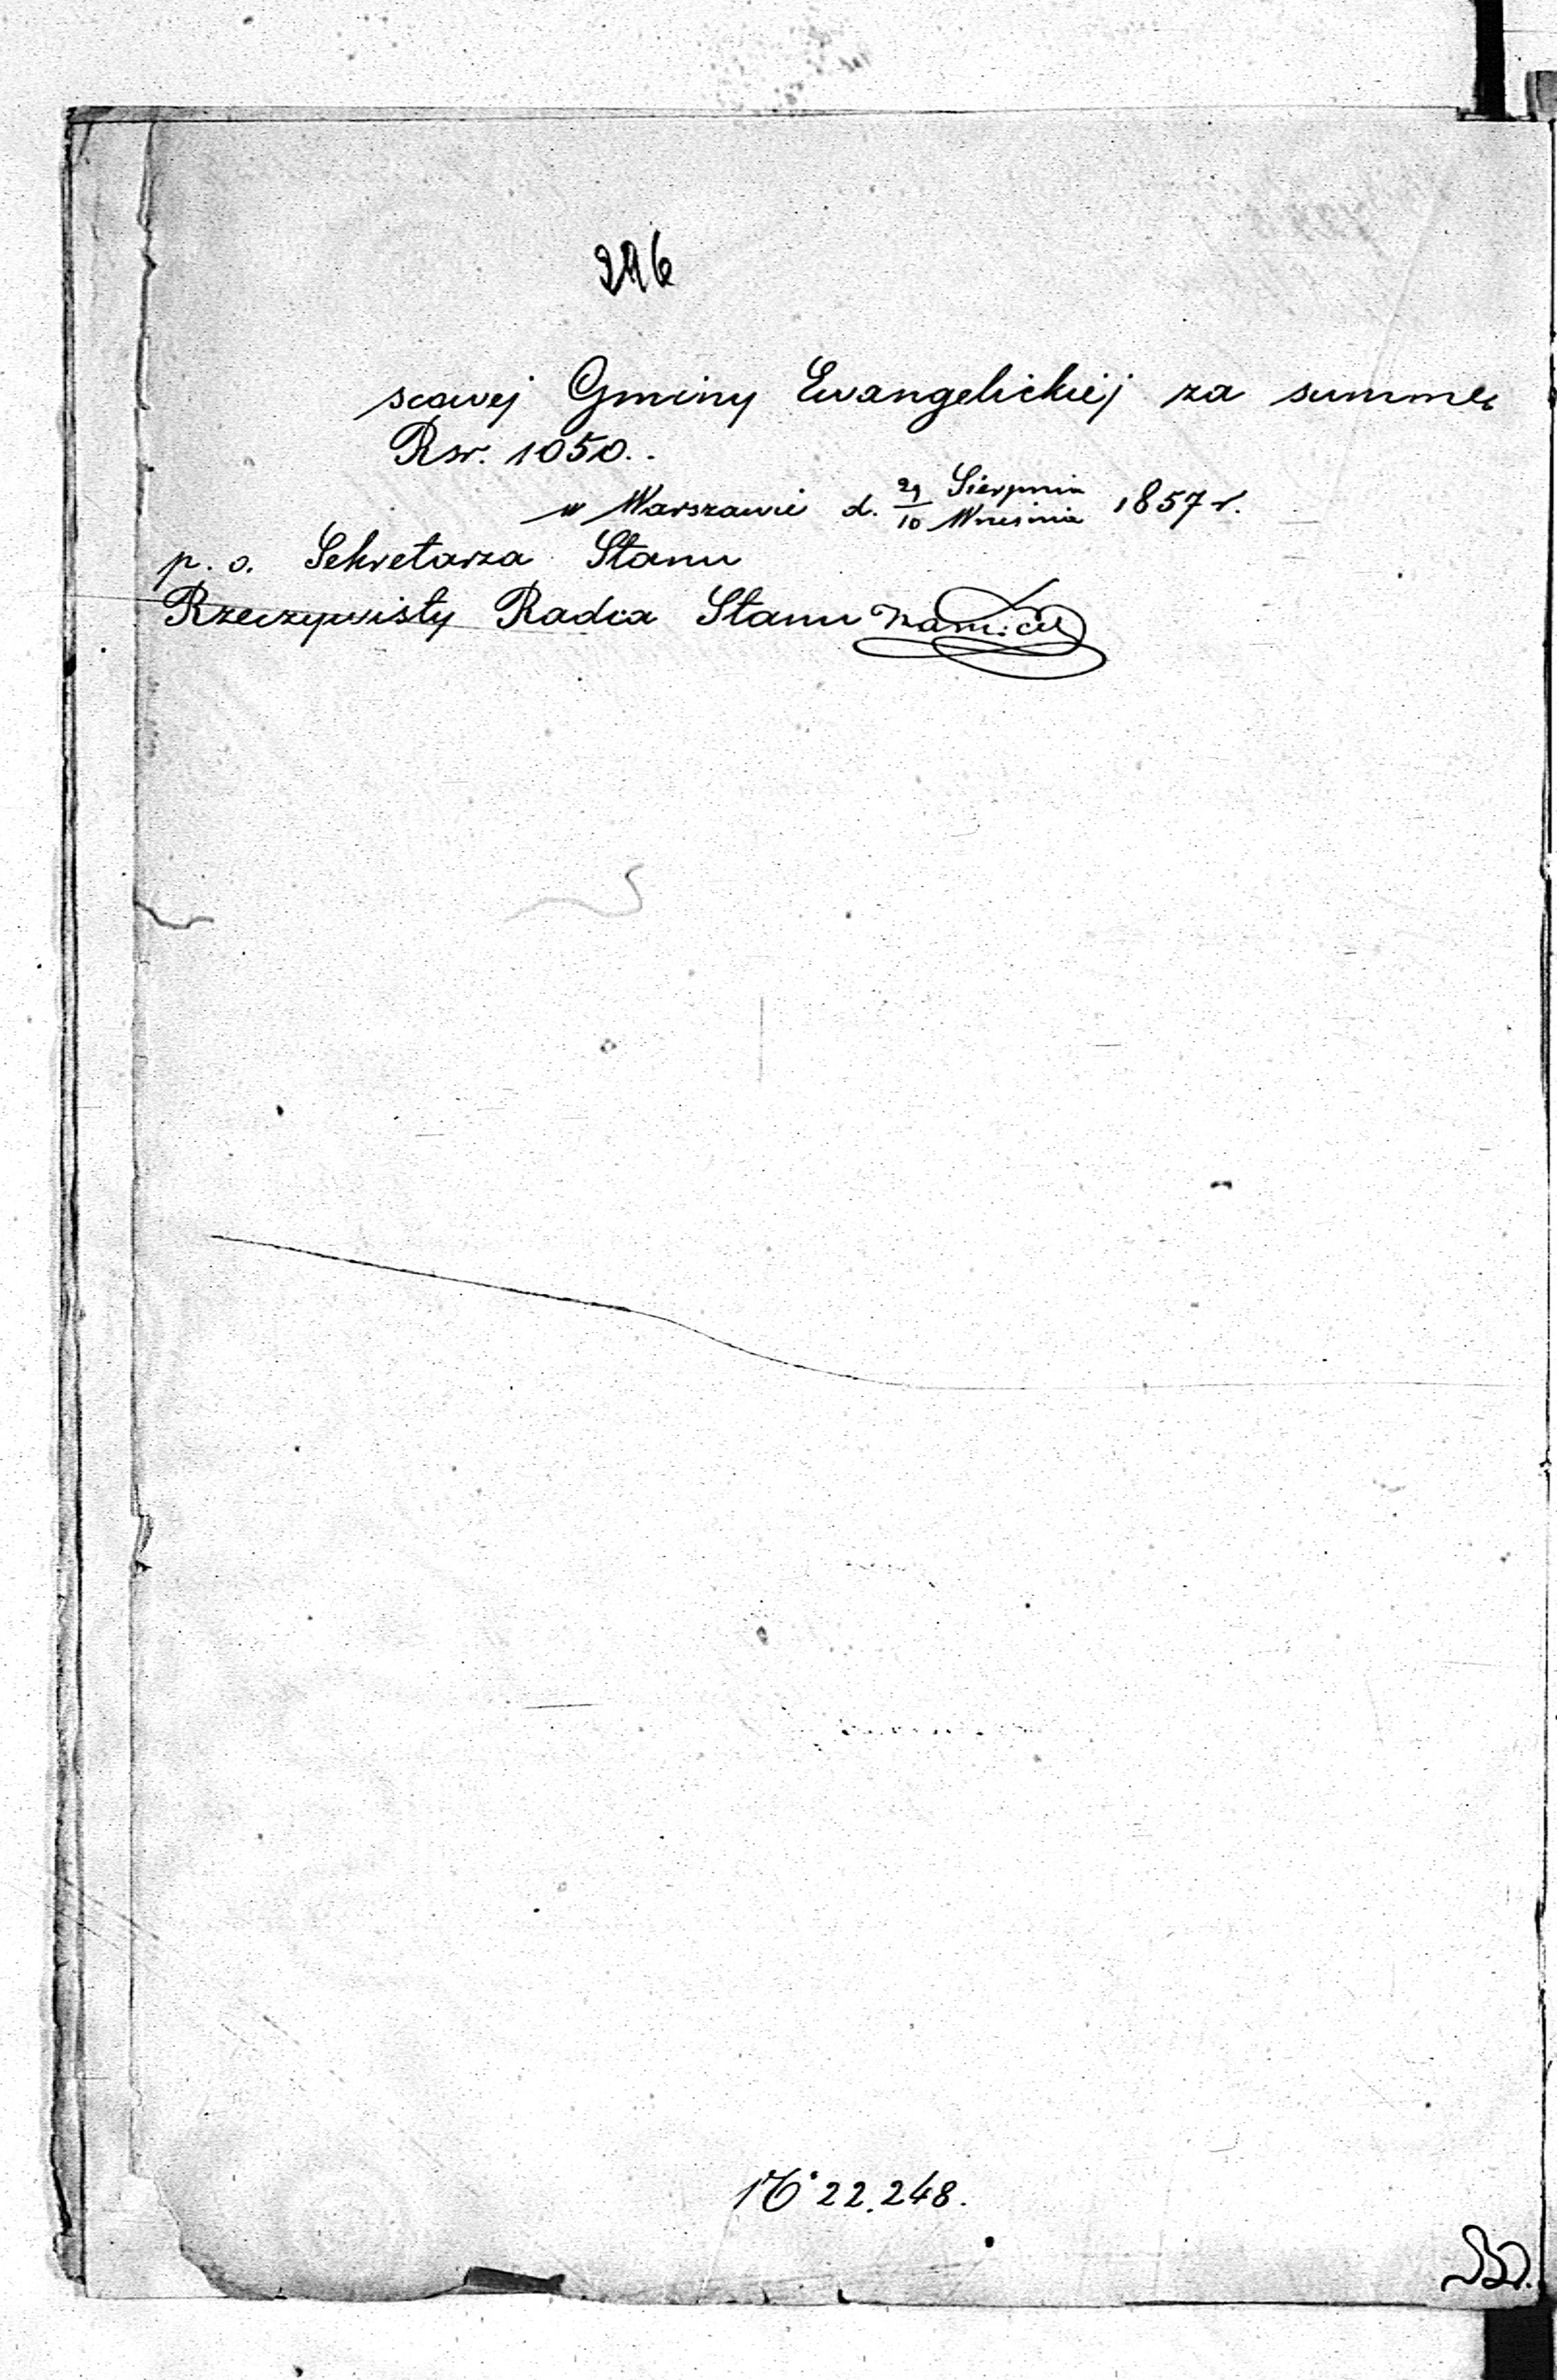 296
scowej Gminy Ewangelickiej za summę
Rsr. 1050..
w Warszawie d. 29/10 Sierpnia/Września 1857 r.
p. o. Sekretarza Stanu
Rzeczywisty Radca Stanu
№ 22,248.